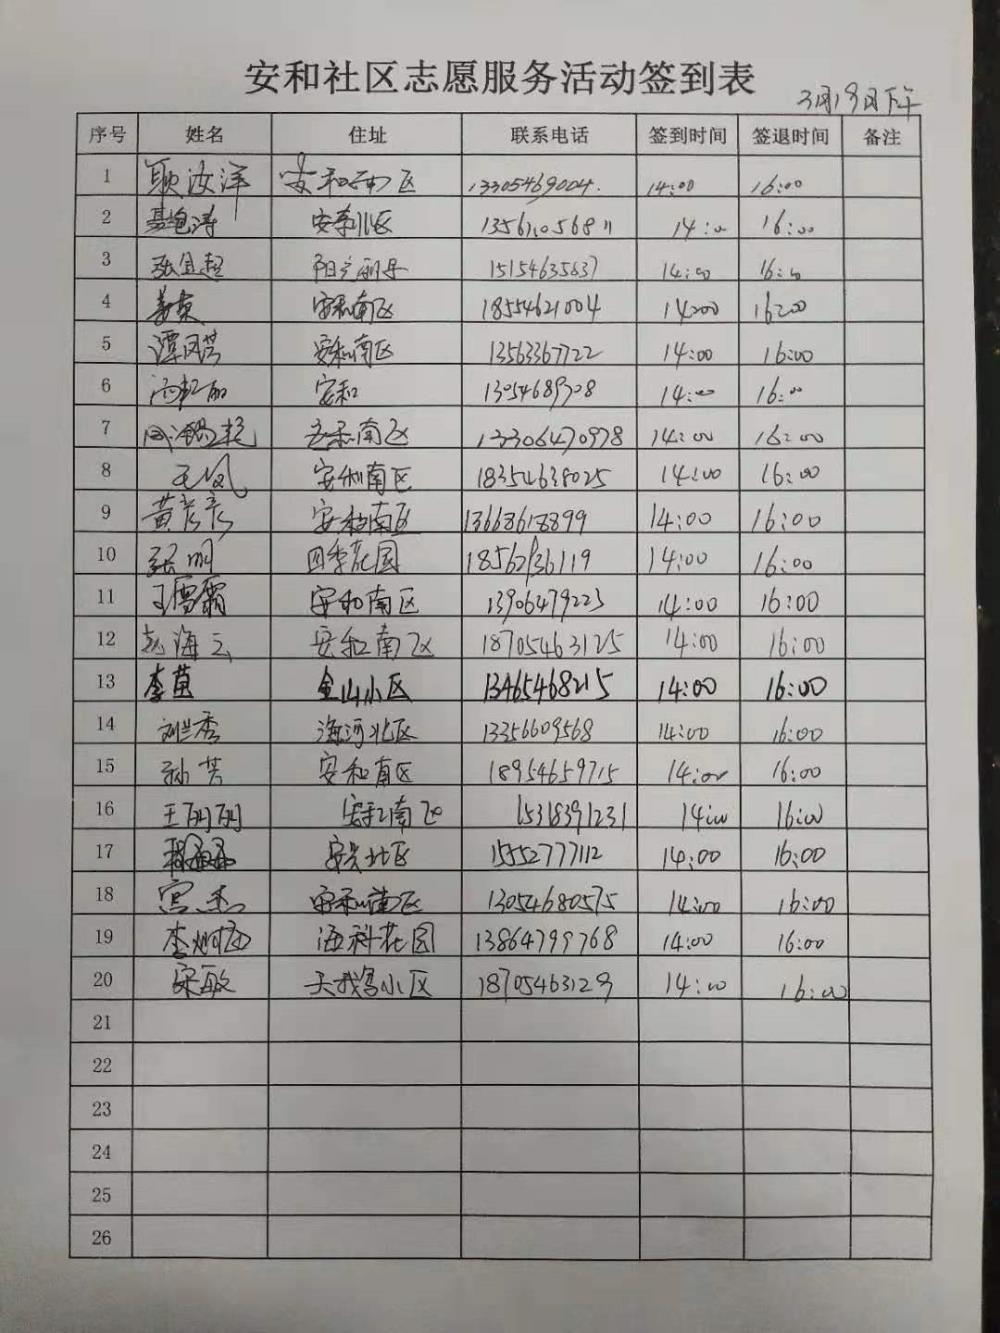 安和社区志愿服务活动签到表
3月19日下午
序号 姓名 住址 联系电话 签到时间 签退时间 备注
1 耿汝洋 安和南区 13305469004. 14:00 16:00
2 安和北区 14:00 16:00
3 张宜超 15154635637 14:00 16:00
4 姜英 安和南区 18554621004 14:00 16:00
5 谭风芹 安和南区 13563367722 14:00 16:00
6 安和 14:00 16:00
7 安和南区 13306470978 14:00 16:00
8 王凤 安和南区 18354638025 14:00 16:00
9 黄彦彦 安和南区 13668618899 14:00 16:00
10 张明 四季花园 18562136119 14:00 16:00
11 王雪霜 安和南区 13906479223 14:00 16:00
12 赵海云 安和南区 18705463125 14:00 16:00
13 李苗 金山小区 13465468215 14:00 16:00
14 刘兰秀 海河北区 13356609568 14:00 16:00
15 孙芳 安和南区 18954659715 14:00 16:00
16 王丽丽 安和南区 15318391231 14:00 16:00
17 安兴北区 15552777112 14:00 16:00
18 宫杰 安和南区 13054680575 14:00 16:00
19 海科花园 13864799768 14:00 16:00
20 宋敏 天鹅湾小区 18705463129 14:00 16:00
21
22
23
24
25
26